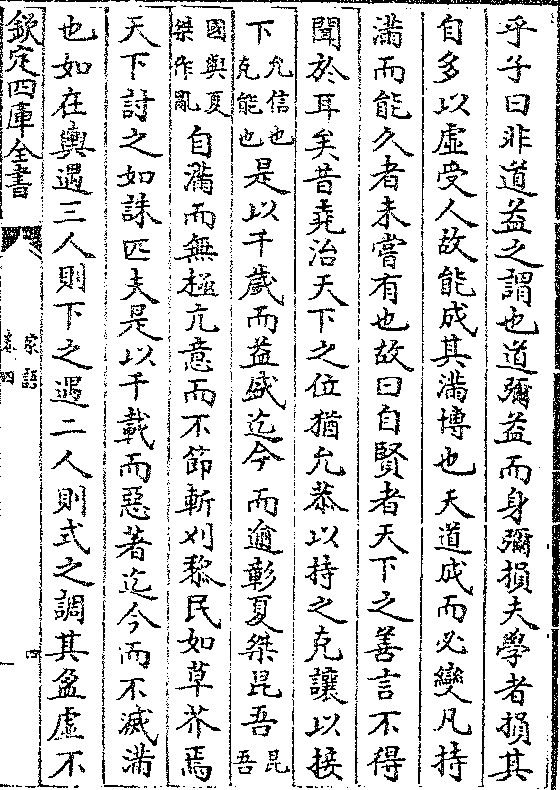 乎子曰非道益之謂也道彌益而身彌損夫學者損其
自多以虛受人故能成其滿博也天道成而必變凡持
滿而能久者未嘗有也故曰自賢者天下之善言不得
聞於耳矣昔堯治天下之位猶允恭以持之克讓以接
下允信也克能也是以千歲而益盛迄今而逾彰夏桀昆吾昆吾
國與夏桀作亂自滿而無極亢意而不節斬刈黎民如草芥焉
天下討之如誅匹夫是以千載而惡著迄今而不滅滿
也如在輿遇三人則下之遇二人則式之調其盈虛不
欽定四庫全書
家語
卷四
四